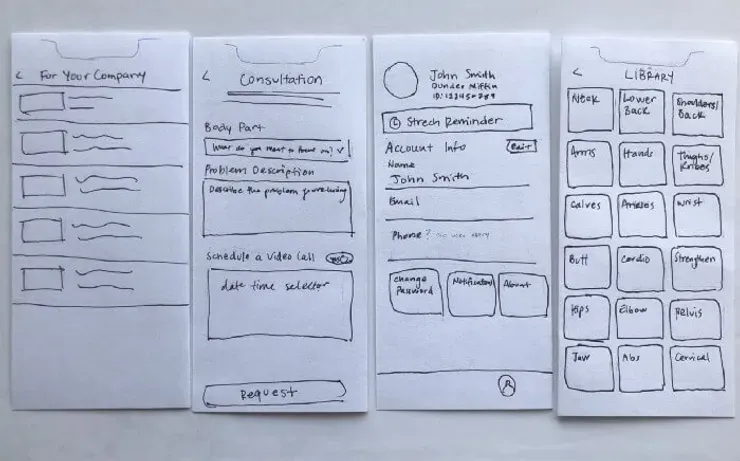 < For Your Company
<
Consultation
Body Part
What do you want to focus on?
Problem Description
Describe the problem you're having
Schedule a Video Call
date time selector
Request
John Smith
Dunder Mifflin
Strech Reminder
Account Info
Edit
Name
John Smith
Email
Phone?
Change Password
Notification
About
<
LIBRARY
Neck
Lower Back
Shoulders/ Back
Arms
Hands
Thighs/ Knees
Calves
Ankles
Wrist
Butt
Cardio
Strengthen
Hips
Elbow
Pelvis
Jaw
Abs
Cervical